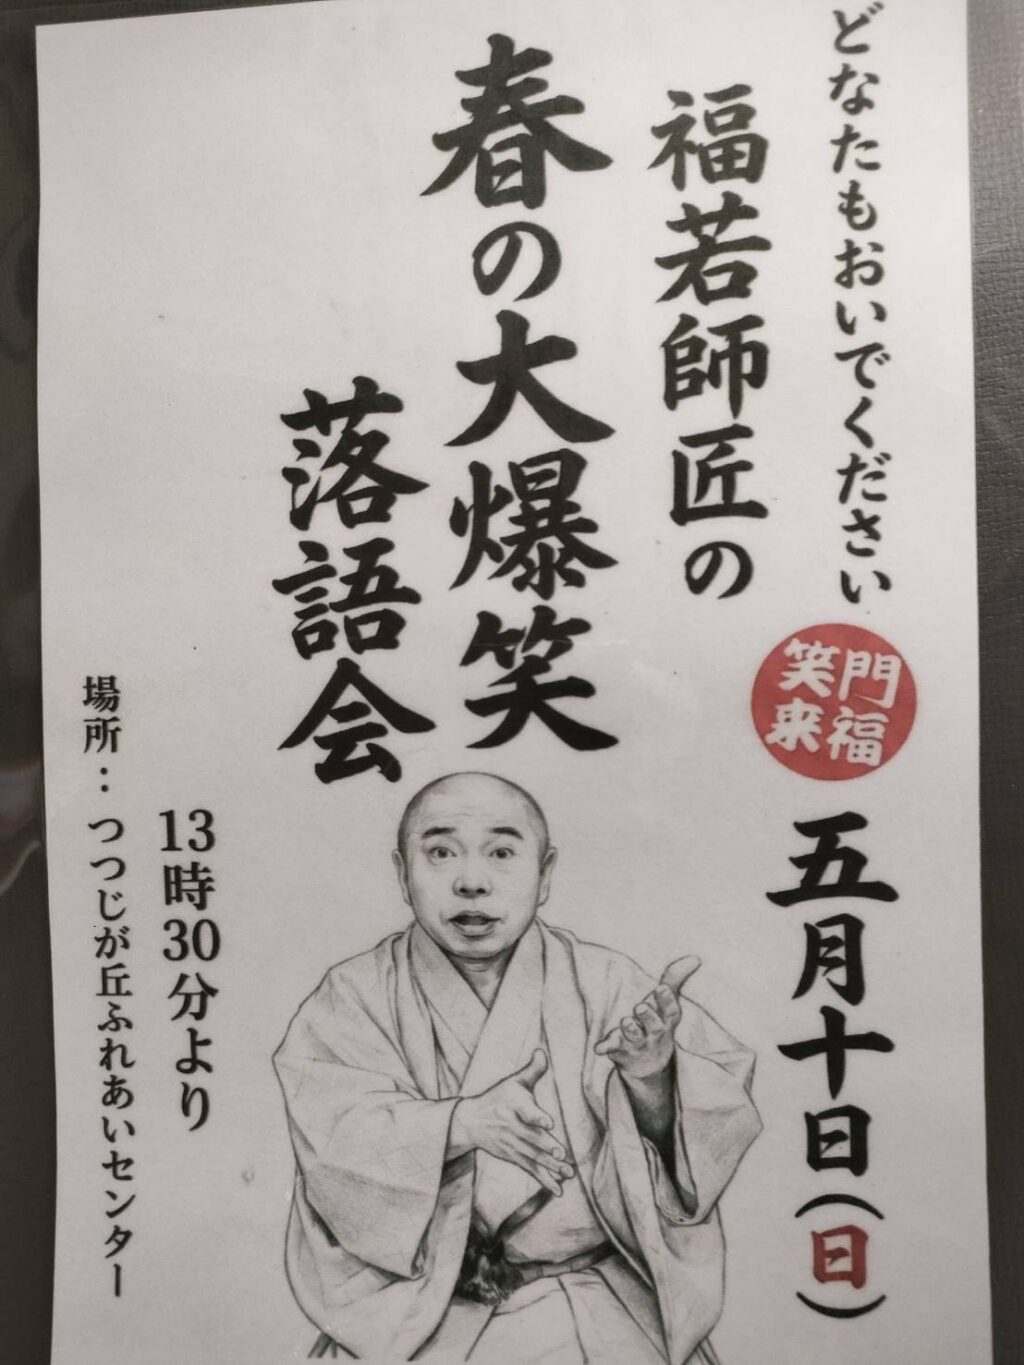 どなたもおいでください
福若師匠の
春の大爆笑
落語会
門福
笑来
五月十日(日)
13時30分より
場所：つつじが丘ふれあいセンター